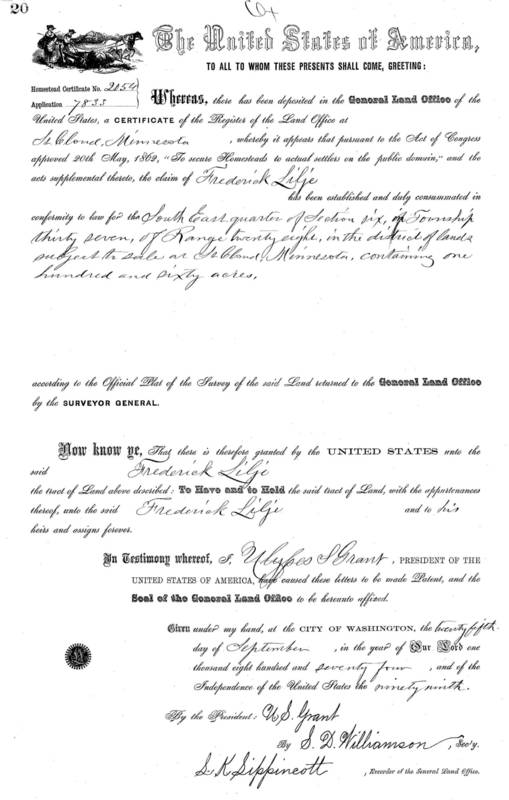 20
The United States of America,
TO ALL TO WHOM THESE PRESENTS SHALL COME, GREETING:
Homestead Certificate No. 2054
Application 7833
Whereas, there has been deposited in the General Land Office of the
United States, a CERTIFICATE of the Register of the Land Office at
St Cloud, Minnesota , whereby it appears that pursuant to the Act of Congress
approved 20th May, 1862, "To secure Homesteads to actual settlers on the public domain," and the
acts supplemental thereto, the claim of Frederick Lilje
has been established and duly consummated in
conformity to law for the South East quarter of Section six, in Township
thirty seven, of Range twenty eight, in the district of lands
subject to sale at St Cloud, Minnesota, containing one
hundred and sixty acres,
according to the Official Plat of the Survey of the said Land returned to the General Land Office
by the SURVEYOR GENERAL.
Now know ye, That there is therefore granted by the UNITED STATES unto the
said Frederick Lilje
the tract of Land above described: To Have and to Hold the said tract of Land, with the appurtenances
thereof, unto the said Frederick Lilje and to his
heirs and assigns forever.
In Testimony whereof, I, Ulysses S Grant , PRESIDENT OF THE
UNITED STATES OF AMERICA, have caused these letters to be made Patent, and the
Seal of the General Land Office to be hereunto affixed.
Given under my hand, at the CITY OF WASHINGTON, the twenty fifth
day of September , in the year of Our Lord one
thousand eight hundred and seventy four , and of the
Independence of the United States the ninety ninth.
By the President: U.S. Grant
By S. D. Williamson, Sec'y.
S. K. Lippincott , Recorder of the General Land Office.